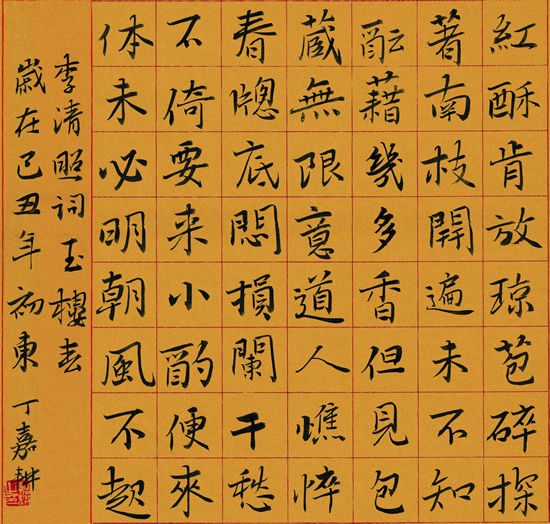 紅酥肯放琼苞碎探
著南枝開遍未不知
酝藉幾多香但見包
藏無限意道人憔悴
春牕底悶損闌干愁
不倚要来小酌便來
休未必明朝風不起
李清照词玉樓春
歲在己丑年初東 丁嘉耕